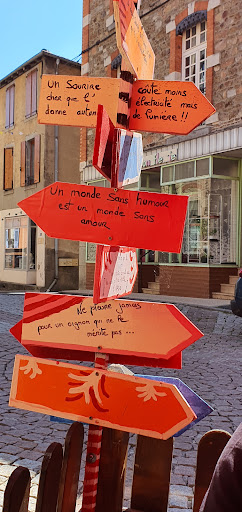 Un Sourire
coûte moins
cher que l'
électricité mais
donne autant
de lumière !!
Un monde Sans humour
est un monde sans
amour
Ne pleure jamais
pour un oignon qui ne te
mérite pas ...